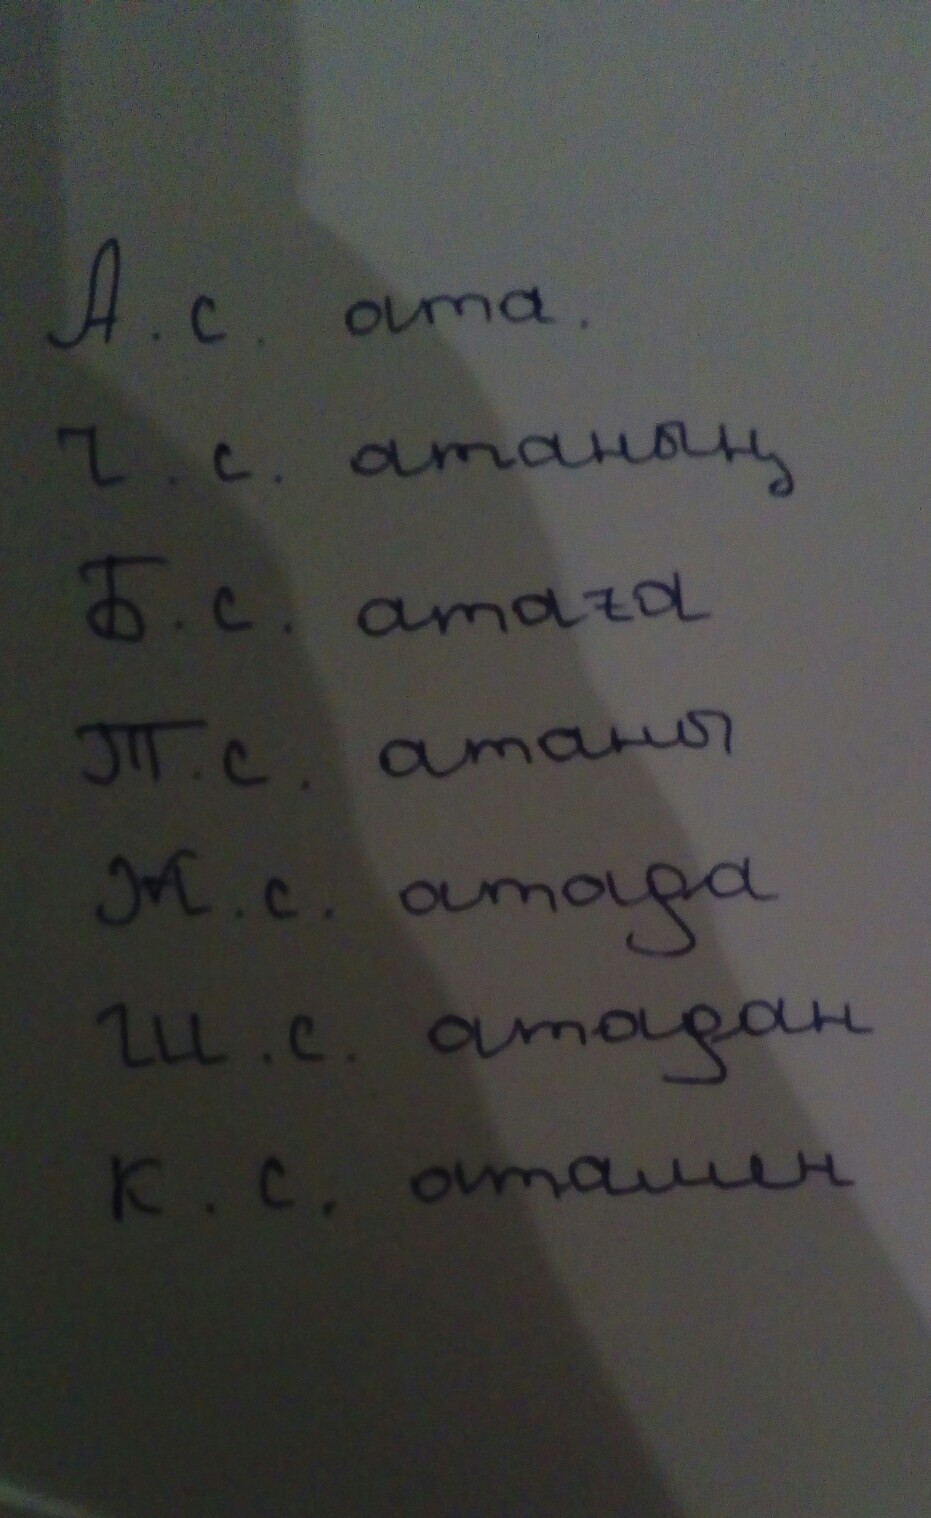 А.с. ата.
І.с. атаның
Б.с. атаға
Т.с. атаны
Ж.с. атада
Ш.с. атадан
К.с. атамен